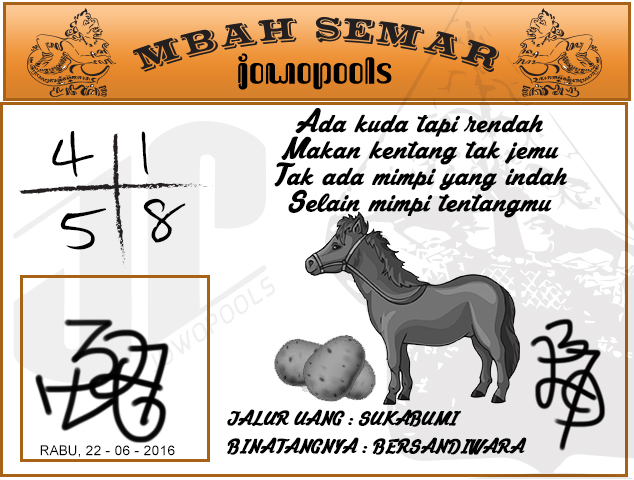 MBAH SEMAR
jowopools
Ada kuda tapi rendah
Makan kentang tak jemu
Tak ada mimpi yang indah
Selain mimpi tentangmu
4 1
5 8
JOWOPOOLS
RABU, 22 - 06 - 2016
JALUR UANG : SUKABUMI
BINATANGNYA : BERSANDIWARA